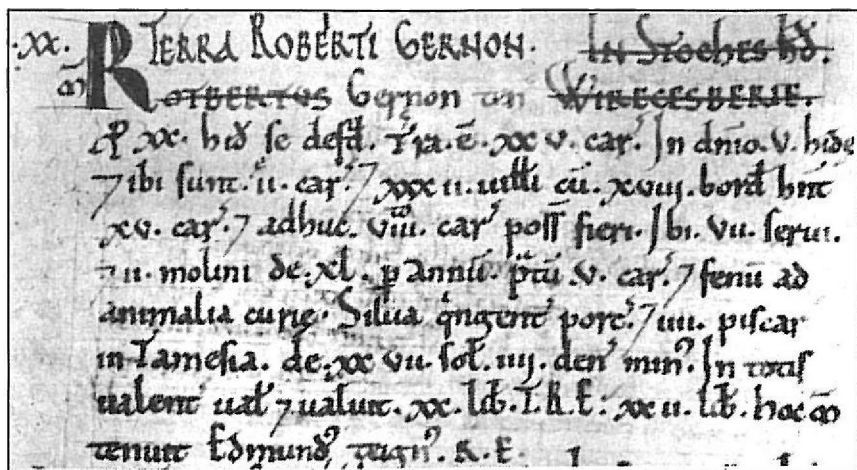 .XX. TERRA ROBERTI GERNON. IN STOCHES HD̃.
m̃ ROTBERTUS Gernon ten WIRECESBERIE.
ꝓ xx. hid se defd̃. Tr̃a. ẽ. xxv. car̃. In dnĩo. v. hidę
⁊ ibi sunt. ii. car̃. ⁊ xxxii. uilli cũ. xviii. bord̃ hñt
xv. car̃. ⁊ adhuc. viii. car̃ poss̃ fieri. Ibi. vii. serui.
⁊ ii. molini de. xl. s̃. p annũ. p̃tũ. v. car̃. ⁊ fenũ ad
animalia curię. Silua q̃ngent̃ porc̃. ⁊ iiii. piscar̃
in Tamesia. de. xxvii. sol̃. iiij. deñ min9. In totis
ualent̃ ual̃ ⁊ ualuit. xx. lib̃. T.R.E: xxii. lib̃. hoc m̃
tenuit Edmund9 teign9. R.E.